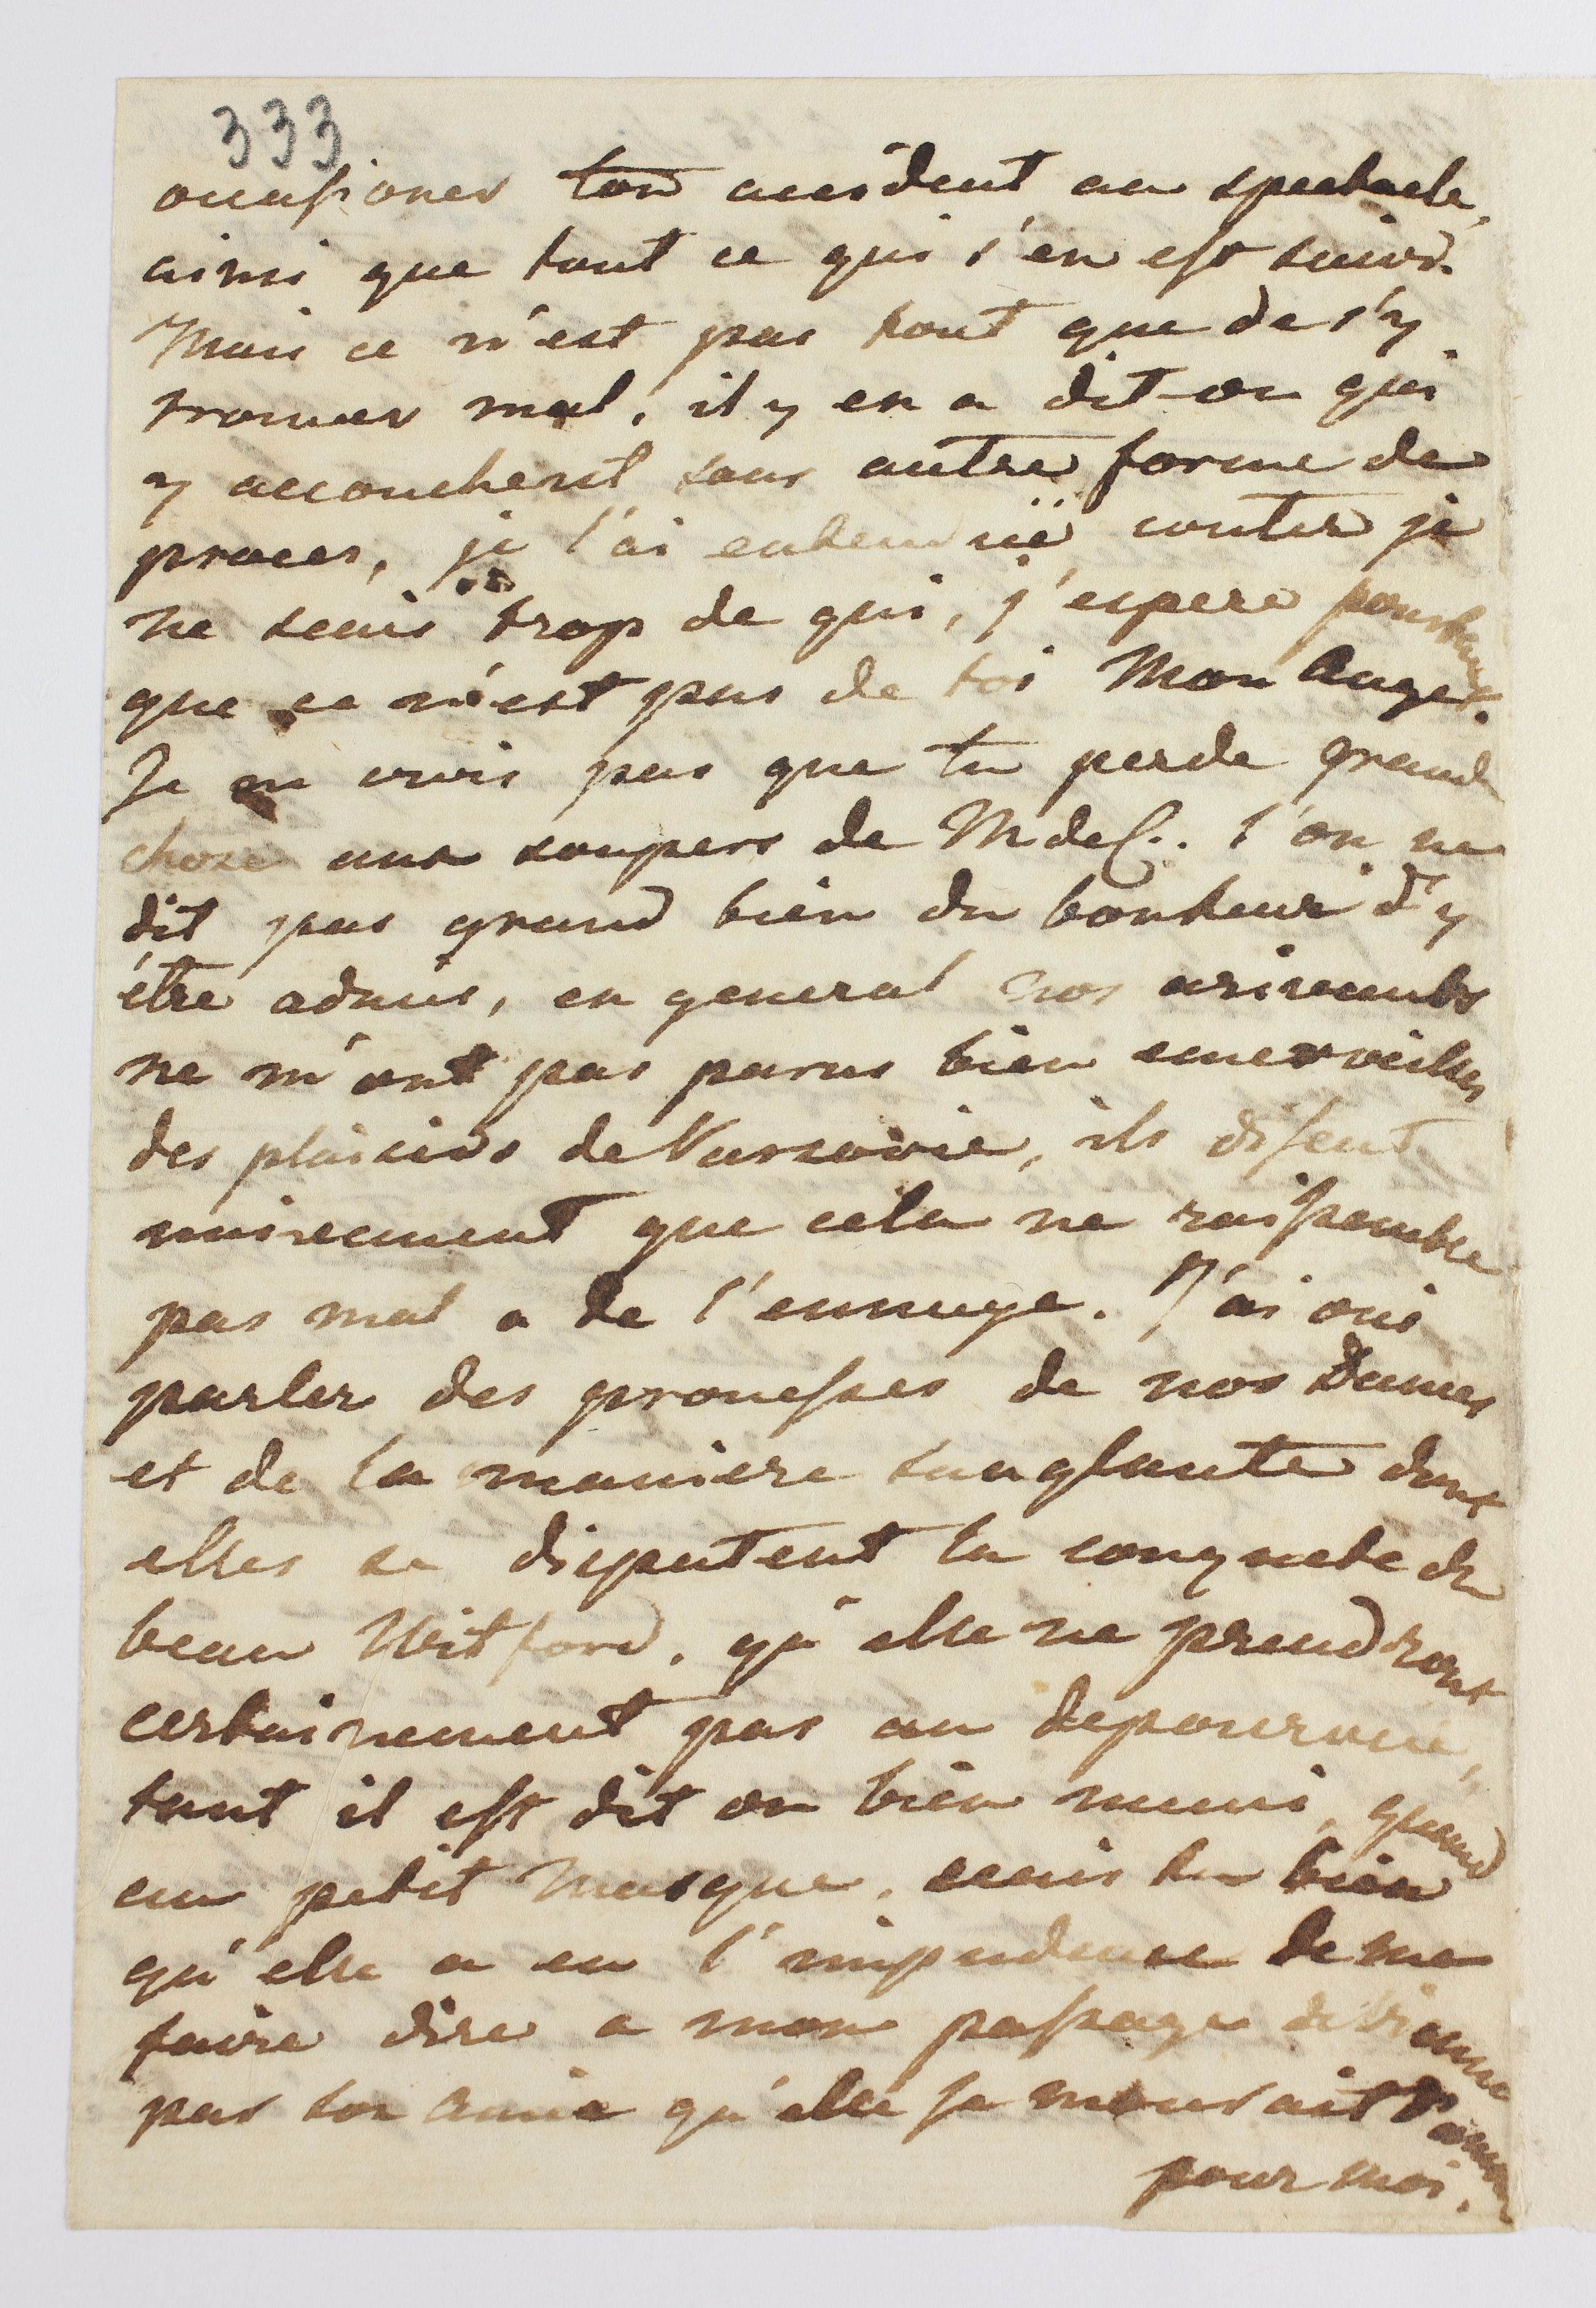 333
occasioner ton accident au spectacle,
ainsi que tout ce qui s'en est suivi.
Mais ce n'est pas tout que de s'y
trouver mal, il y en a dit-on qui
y accouchent sans autre forme de
proces, je l'ai entenduë conter je
ne scais trop de qui, j'espere pourtant
que ce n'est pas de toi Mon Ange.
Je ne crois pas que tu perde grand
chose aux soupers de M de C.. l'on ne
dit pas grand bien du bonheur d'y
être admis, en general nos arivants
ne m'ont pas parus bien emerveilles
des plaisirs de Varsovie, ils disent
unirement que cela ne raissemble
pas mal a de l'ennuye. J'ai oui
parler des prouesses de nos Dames
et de la maniere sanglante dont
elles se disputent la conquete du
beau Witford, qu'elle ne prendront
certainement pas au depourvue,
tant il est dit on bien muni, quand
au petit Masque, scais tu bien
qu'elle a eu l'impudence de me
faire dire a mon passage de Vienne
par son Amie qu'elle se mourait d'amour
pour moi.